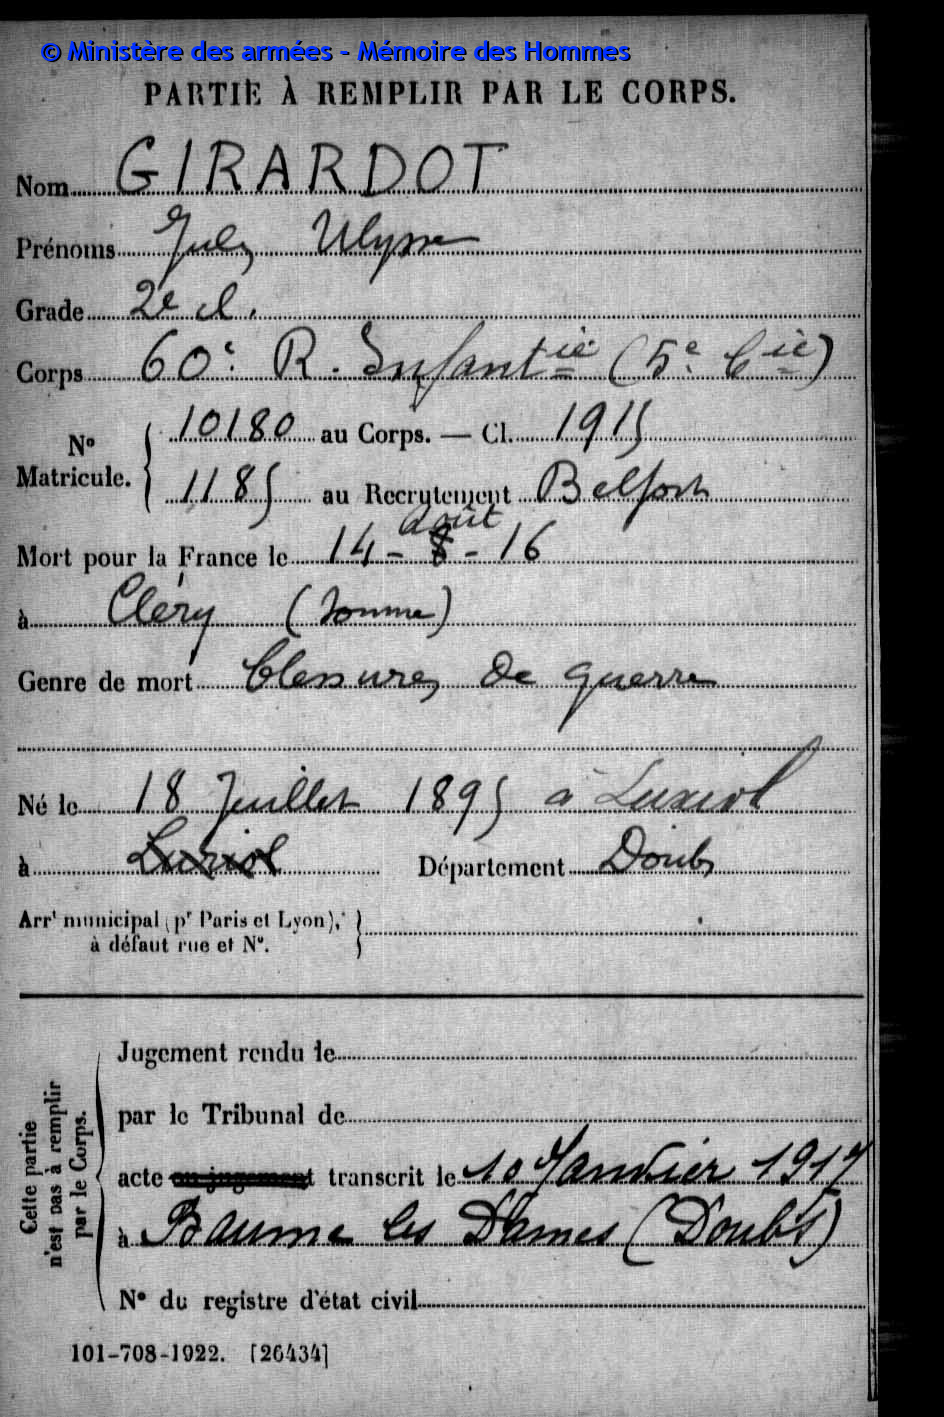 © Ministère des armées - Mémoire des Hommes
PARTIE À REMPLIR PAR LE CORPS.
Nom GIRARDOT
Prénoms Jules Ulysse
Grade 2e cl.
Corps 60e R. Infantie (5e Cie)
N° Matricule. { 10180 au Corps. — Cl. 1915
1185 au Recrutement Belfort
août
Mort pour la France le 14 - 8 - 16
à Cléry (Somme)
Genre de mort blessures de guerre
Né le 18 Juillet 1895 à Luxiol
à Luxiol Département Doubs
Arrt municipal (pr Paris et Lyon), }
à défaut rue et N°.
Cette partie n'est pas à remplir par le Corps.
Jugement rendu le
par le Tribunal de
acte ou jugement transcrit le 10 Janvier 1917
à Baume les Dames (Doubs)
N° du registre d'état civil
101-708-1922. [26434]